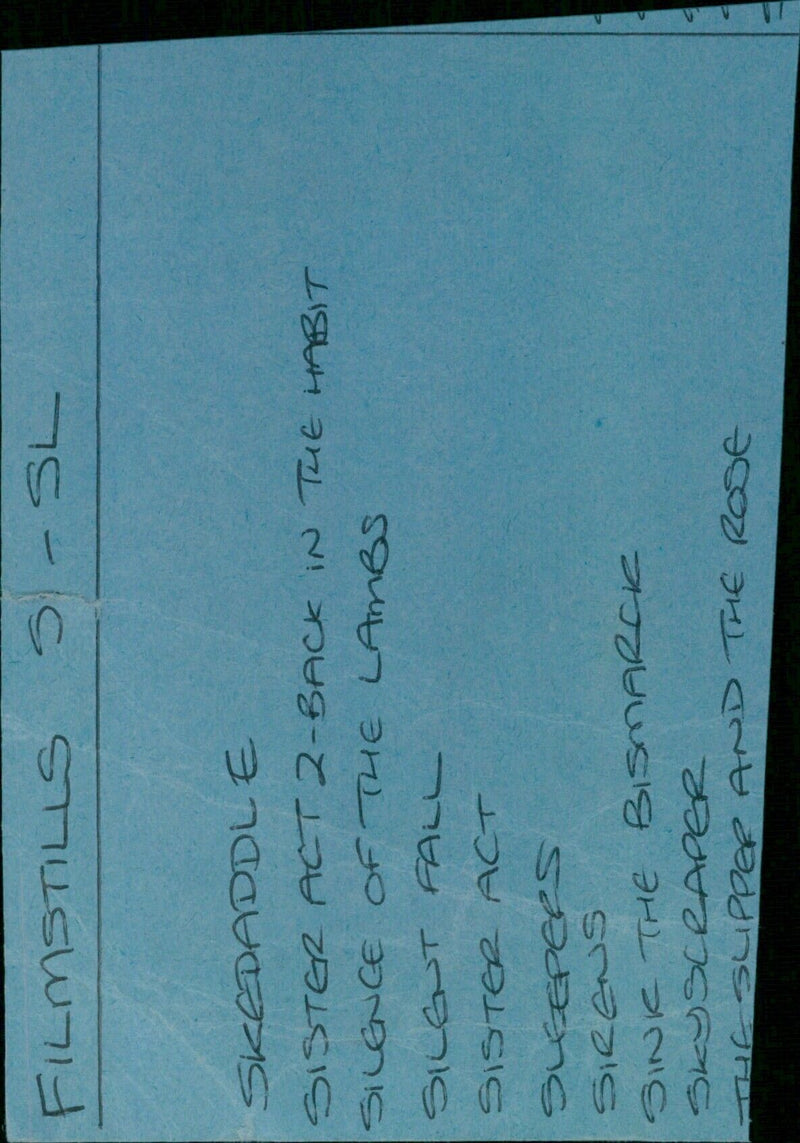 FILMSTILLS S - SL
SKEDADDLE
SISTER ACT 2-BACK IN THE HABIT
SILENCE OF THE LAMBS
SILENT FALL
SISTER ACT
SLEEPERS
SIRENS
SINK THE BISMARCK
SKYSCRAPER
THE SLIPPER AND THE ROSE